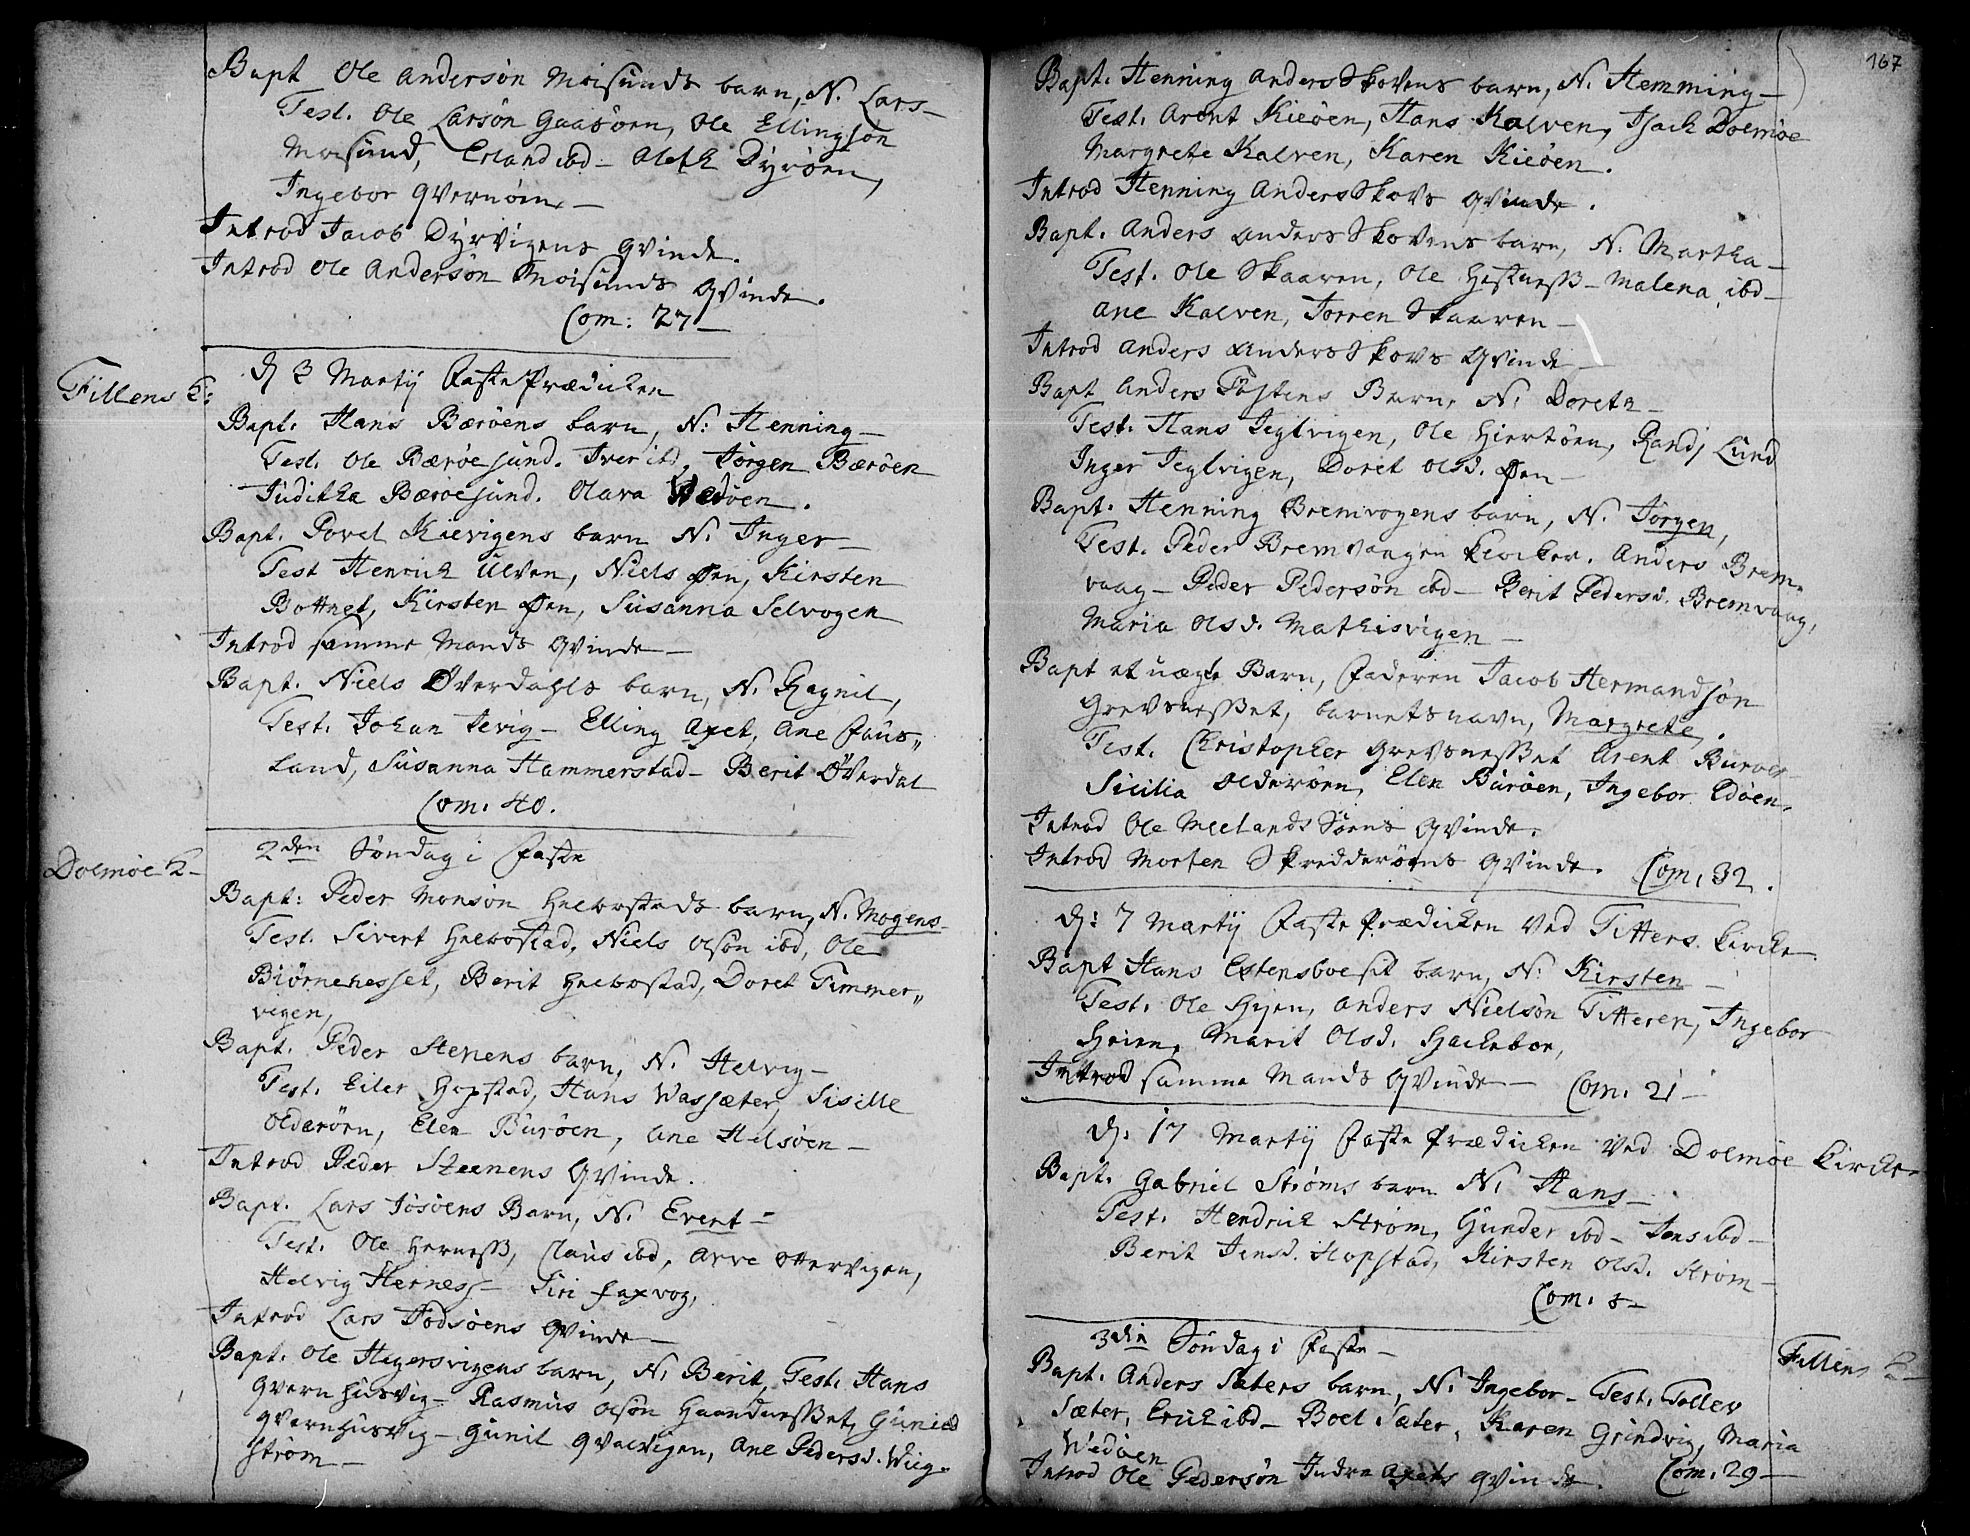 Bapt Ole Andersøn Moisunds barn, N. Lars-
Test. Ole Larsøn Gaasøen, Ole Ellingsøn
Moisund, Erland ibd- Aleth Dyrøen,
Ingebor Qvernøen-
Introd Jacob Dyrvigens Qvinde.
Introd Ole Andersøn Moisunds Qvinde.
Com: 27-
Fillens K:
d 3 Martij Faste Prædicken
Bapt. Hans Bærøens barn, N: Henning-
Test. Ole Bærøesund. Iver ibd, Jørgen Bærøen
Juditha Bærøesund. Olava Wedøen.
Bapt. Povel Kievigens barn N. Inger-
Test Henrich Ulven, Niels Øen, Kirsten
Bottnet, Kirsten Øen, Susanna Selvogen
Introd samme Mands Qvinde-
Bapt. Niels Øverdahls barn, N. Ragnil,
Test. Johan Jevig- Elling Axet, Ane Faus„
land, Susanna Hammerstad- Berit Øverdal
Com. 40.
Dolmøe K-
2den Søndag i Faste
Bapt: Peder Monsøn Helbostads barn, N. Mogens-
Test. Sivert Helbostad, Niels Olsøn ibd, Ole
Biørnenesset, Berit Helbostad, Doret Timmer„
vigen,
Bapt. Peder Stenens barn, N. Helvig-
Test. Eiler Hopstad, Hans Wassæter, Sisille
Olderøen, Elen Burøen, Ane Helsøen-
Introd Peder Steenens Qvinde.
Bapt. Lars Jøsøens Barn, N. Evert-
Test. Ole Herness, Claus ibd, Arve Ottervigen,
Helvig Herness- Siri Faxvog,
Introd Lars Jødsøens Qvinde-
Bapt. Ole Hegersvigens barn, N. Berit, Test. Hans
Qvernhusvig- Rasmus Olsøn Haandnesset, Gunild
Qvernhusvig- Gunil Qvalvigen, Ane Pedersd. Wiig-
Strøm-
167
Bapt. Henning Anders Skovens barn, N. Hemming-
Test. Arent Kieøen, Hans Kalven, Isach Dolmøe
Margrete Kalven, Karen Kieøen.
Introd Henning Anders Skovs Qvinde.
Bapt. Anders Anders Skovens barn, N. Martha-
Test. Ole Skaaren, Ole Hestness- Malena ibd-
Ane Kalven, Torren Skaaren-
Introd Anders Anders Skovs Qvinde-
Bapt Anders Festens Barn, N. Doreth-
Test. Hans Jegtvigen, Ole Hiertøen, Randj Lund
Inger Jegtvigen, Doret Olsd. Øen-
Bapt. Henning Bremvogens barn, N. Jørgen,
Test. Peder Bremvangen klocker. Anders Brem-
vaag- Peder Pedersøn ibd- Berit Pedersd. Bremvaag,
Maria Olsd. Mathisvigen-
Bapt et uægte Barn, Faderen Jacob Hermandsøn
Grevsnesset, barnets navn, Margrete.
Test. Christopher Grevsnesset Arent Burøe-
Sicilia Olderøen, Elen Burøen, Ingebor Edøen.
Introd Ole Meelands Søens Qvinde.
Introd Morten Skredderøens Qvinde. Com. 32.
d: 7 Martij Faste Prædicken ved Titters Kircke
Bapt Hans Estensboesit barn, N. Kirsten-
Test. Ole Hyen, Anders Nielsøn Titteren, Ingebor
Heien, Marit Olsd. Hackeboe,
Introd samme Mands Qvinde- Com. 21-
d. 17 Martij Faste Prædicken ved Dolmøe Kircke
Bapt. Gabriel Strøms barn N. Hans-
Test. Hendrich Strøm, Gunder ibd- Jens ibd-
Berit Jensd. Hopstad, Kirsten Olsd. Strøm-
Com. 8-
Fillens K-
3die Søndag i Faste-
Bapt. Anders Sæters barn, N. Ingebor- Test. Tollev
Sæter, Erich ibd- Boel Sæter, Karen Grindvig, Maria
Wedøen
Introd Ole Pedersøn Indre Axets Qvinde. Com. 29-